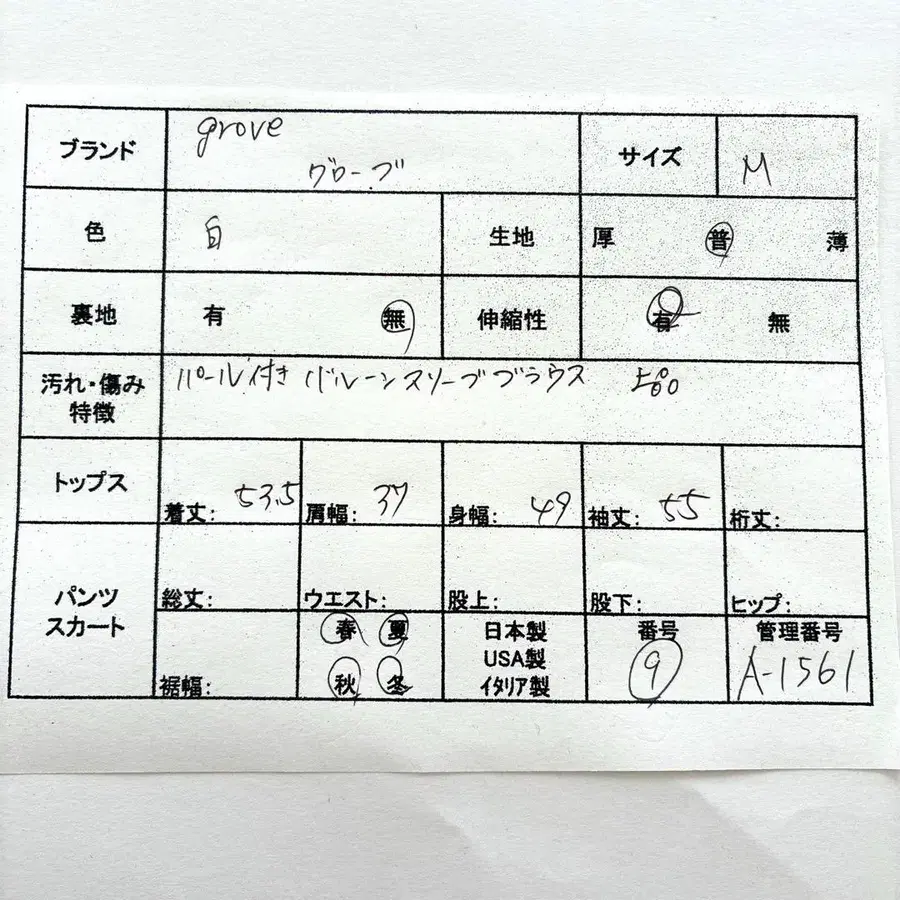 ブランド grove サイズ M
グローブ
色 白 生地 厚 普 薄
裏地 有 無 伸縮性 有 無
汚れ・傷み パール付き バルーンスリーブブラウス
特徴
トップス 着丈: 53.5 肩幅: 37 身幅: 49 袖丈: 55 裄丈:
パンツ
スカート
総丈: ウエスト: 股上: 股下: ヒップ:
裾幅: 春 夏
秋 冬
日本製
USA製
イタリア製
番号
9
管理番号
A-1561